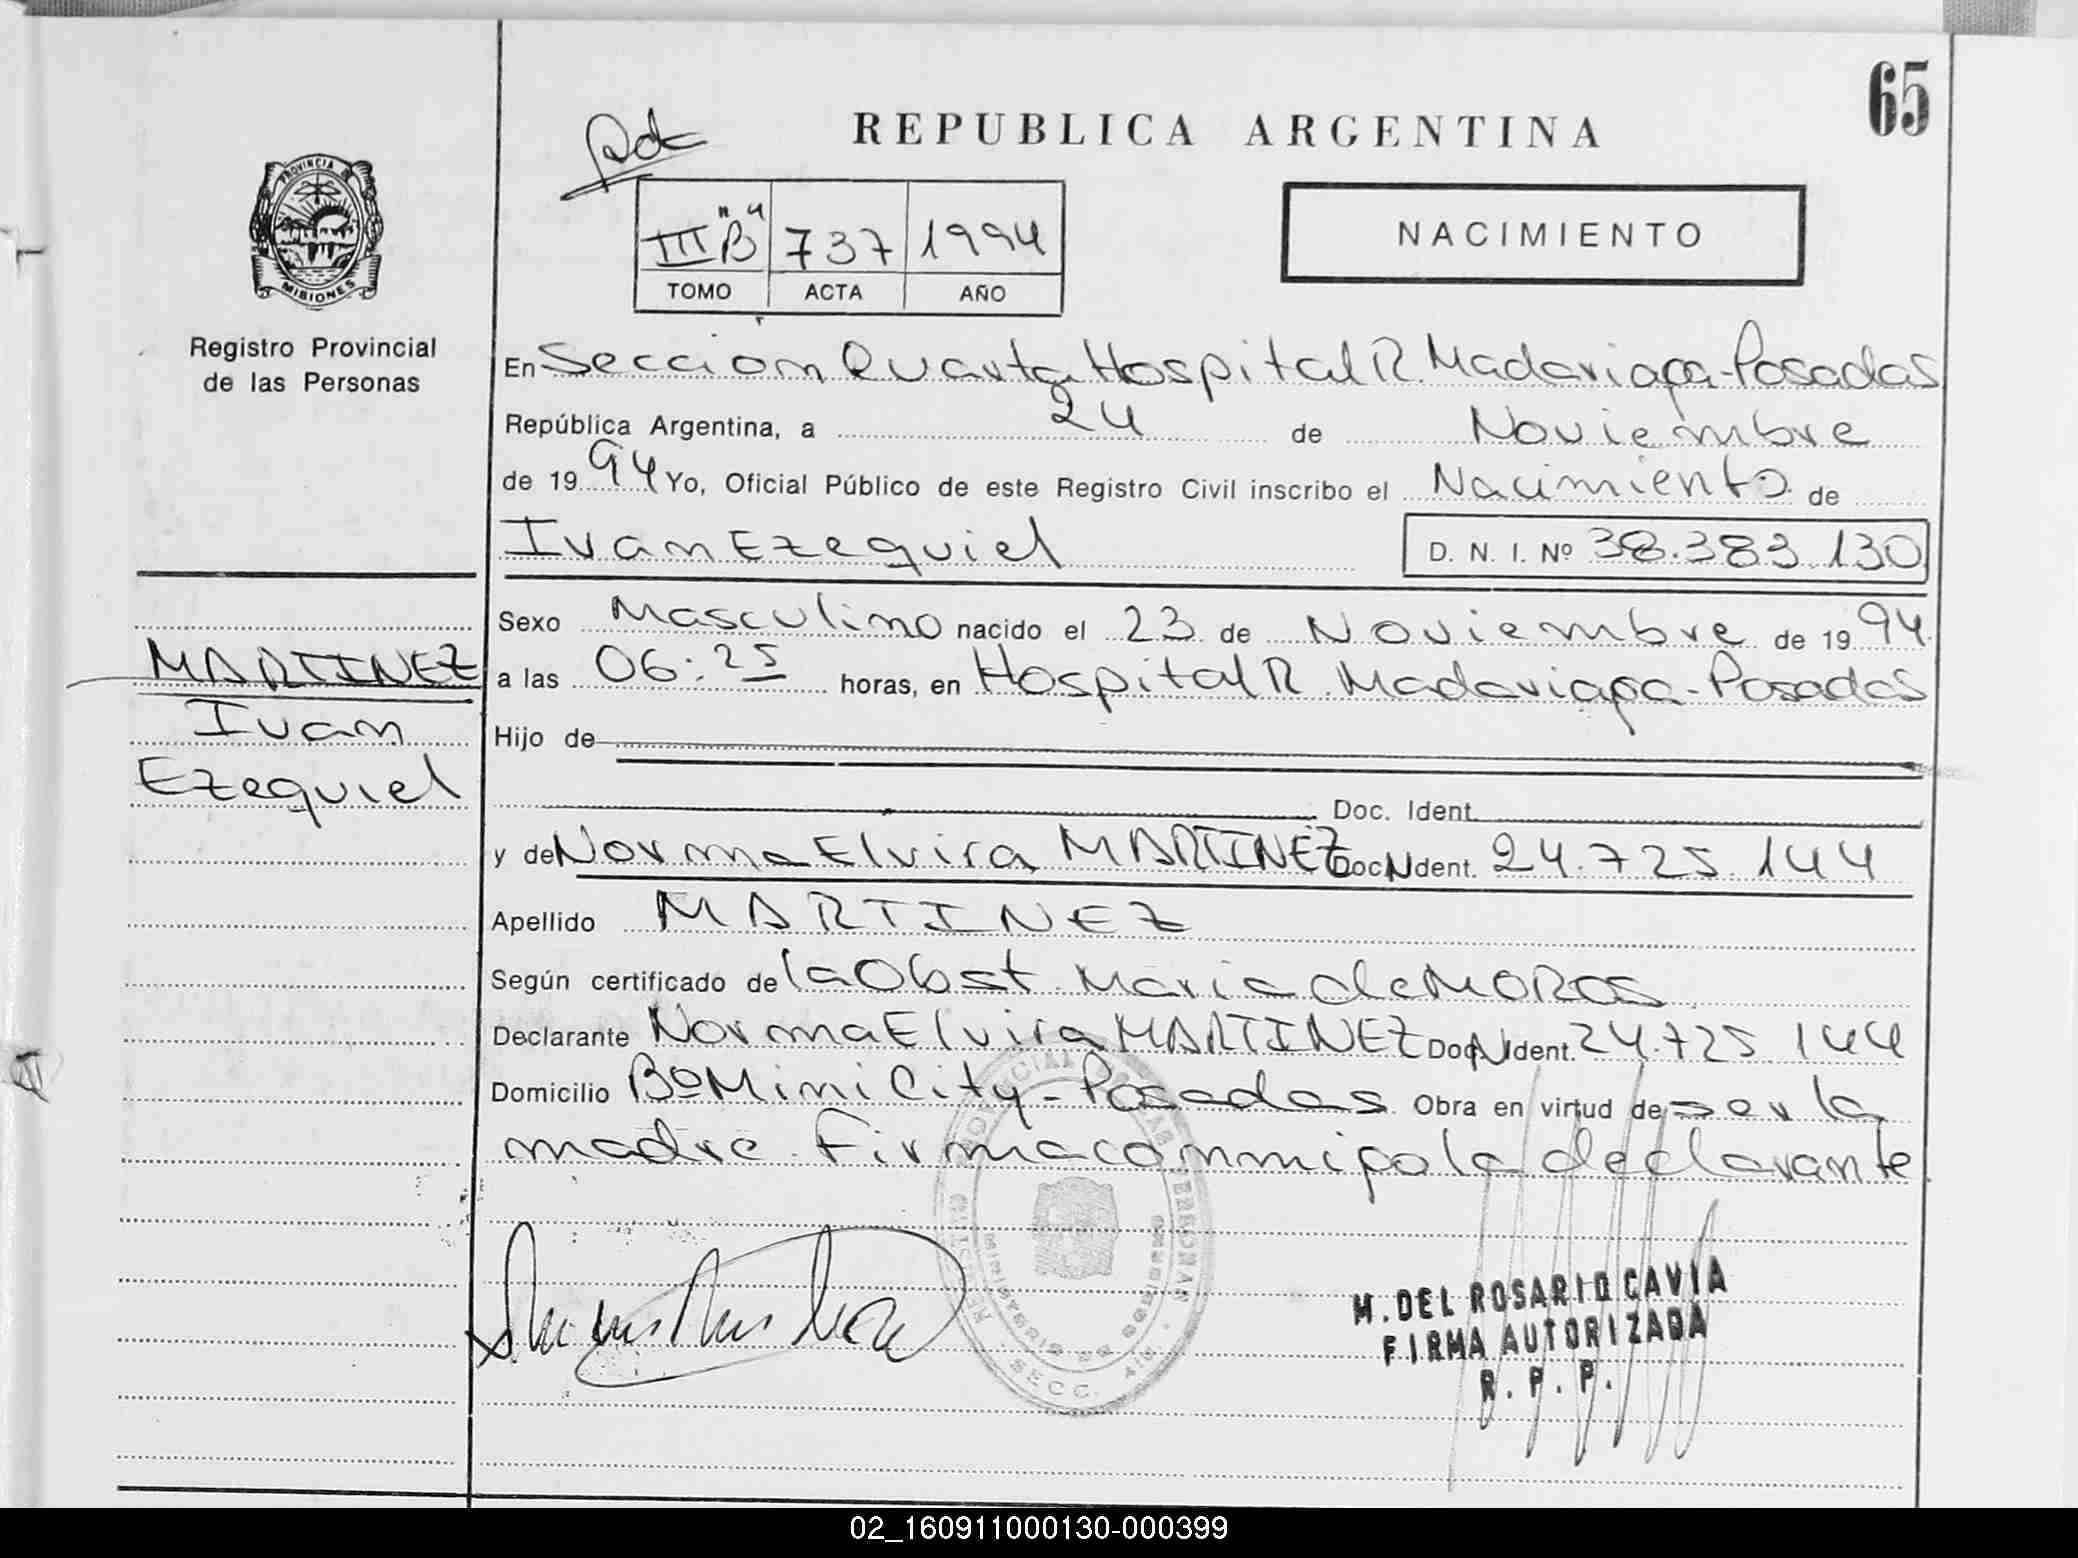 65
REPUBLICA ARGENTINA
PROVINCIA DE
MISIONES
III "B" 737 1994
TOMO ACTA AÑO
NACIMIENTO
Registro Provincial
de las Personas
En Sección Quarta Hospital R. Madariaga-Posadas
República Argentina, a 24 de Noviembre
de 1994 Yo, Oficial Público de este Registro Civil inscribo el Nacimiento de
Ivan Ezequiel D. N. I. Nº 38.383.130
Sexo Masculino nacido el 23 de Noviembre de 1994
a las 06:25 horas, en Hospital R. Madariaga-Posadas
Hijo de
Doc. Ident.
MARTINEZ
Ivan
Ezequiel
y de Norma Elvira MARTINEZ Doc. Ident. 24.725.144
Apellido MARTINEZ
Según certificado de la Obst. Maria de MOROS
Declarante Norma Elvira MARTINEZ Doc. Ident. 24.725.144
Domicilio Bº Mini City-Posadas. Obra en virtud de ser la
madre. Firma conmigo la declarante
M. DEL ROSARIO CAVIA
FIRMA AUTORIZADA
R. P. P.
02_160911000130-000399